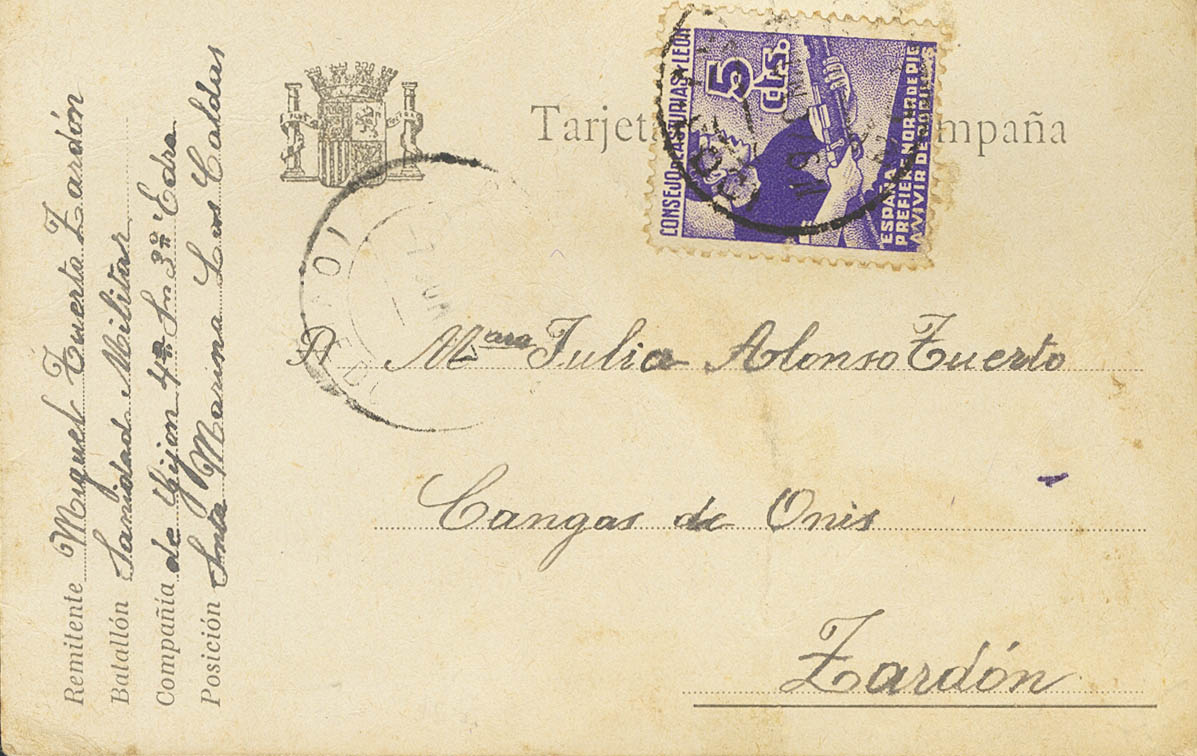 Tarjeta mpaña
CONSEJO DE ASTURIAS Y LEON
5 cts.
ESPAÑA
PREFIERE MORIR DE PIE
A VIVIR DE RODILLAS
Remitente Miguel Tuerto Zardón
Batallón Sanidad Militar
Compañía de Gijon 4ª
Posición Snta Marina Las Caldas
A Mª Julia Alonso Tuerto
Cangas de Onis
Zardón